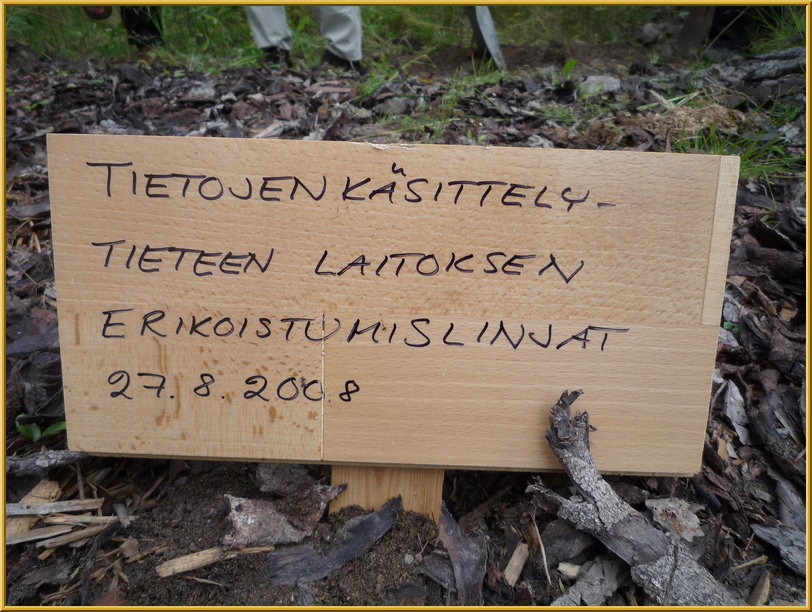 TIETOJENKÄSITTELY-
TIETEEN LAITOKSEN
ERIKOISTUMISLINJAT
27.8.2008